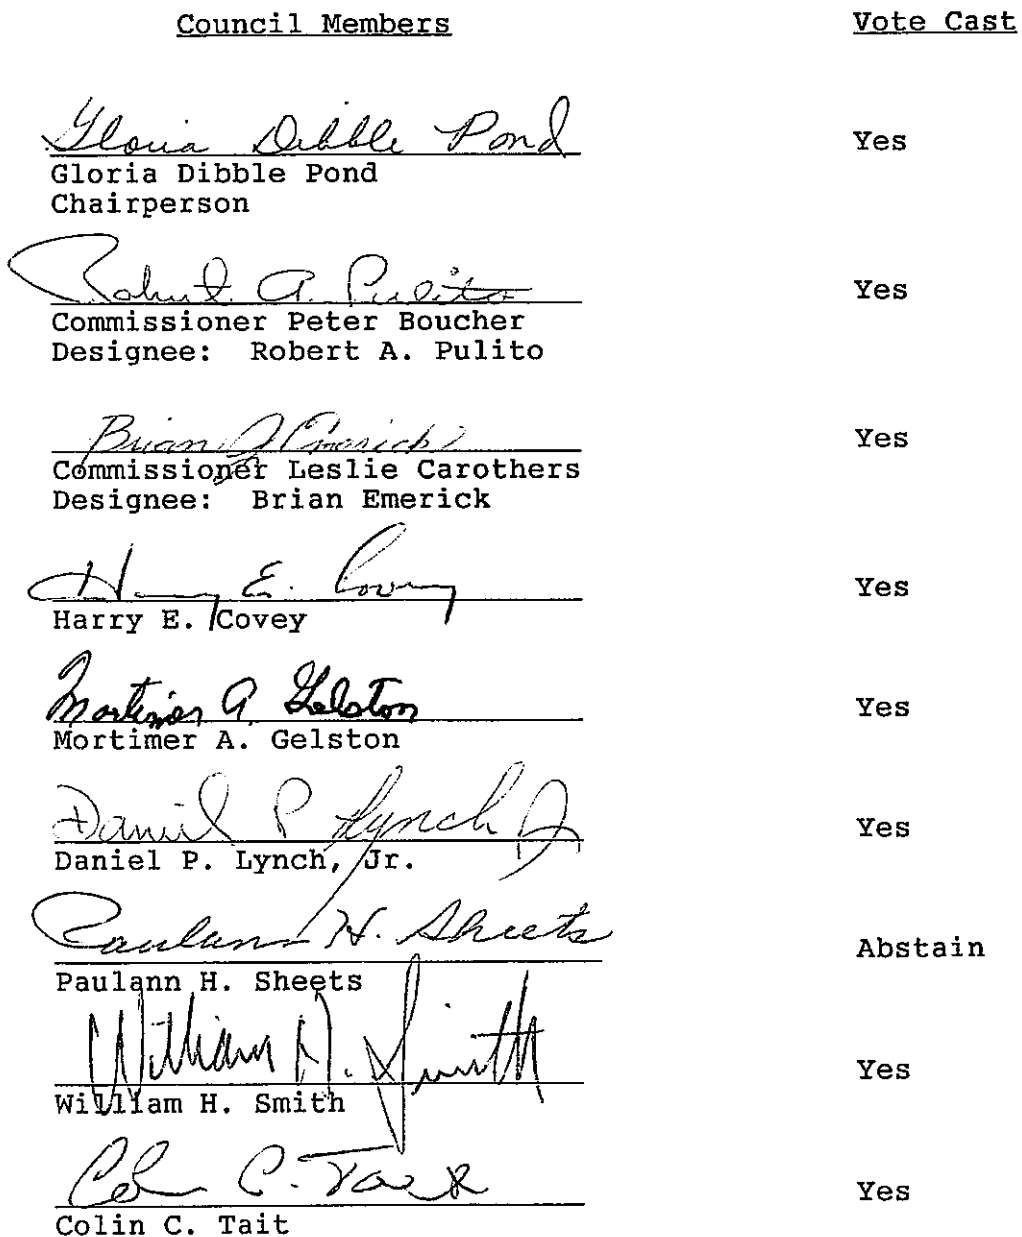 Council Members Vote Cast
Gloria Dibble Pond Yes
Gloria Dibble Pond
Chairperson
Robert A. Pulito Yes
Commissioner Peter Boucher
Designee: Robert A. Pulito
Brian J Emerick Yes
Commissioner Leslie Carothers
Designee: Brian Emerick
Harry E. Covey Yes
Harry E. Covey
Mortimer A. Gelston Yes
Mortimer A. Gelston
Daniel P Lynch Jr Yes
Daniel P. Lynch, Jr.
Paulann H. Sheets Abstain
Paulann H. Sheets
William H. Smith Yes
William H. Smith
Colin C. Tait Yes
Colin C. Tait